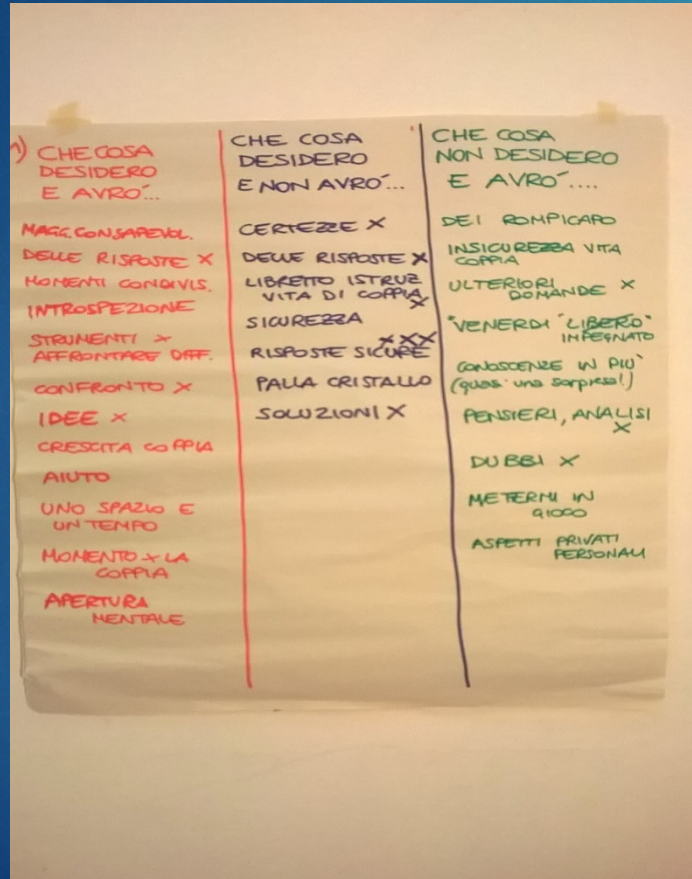 1) CHE COSA
DESIDERO
E AVRÓ...
MAGG. CONSAPEVOL.
DELLE RISPOSTE X
MOMENTI CONDIVIS.
INTROSPEZIONE
STRUMENTI X
AFFRONTARE DIFF.
CONFRONTO X
IDEE X
CRESCITA COPPIA
AIUTO
UNO SPAZIO E
UN TEMPO
MOMENTO X LA
COPPIA
APERTURA
MENTALE
CHE COSA
DESIDERO
E NON AVRÓ...
CERTEZZE X
DELLE RISPOSTE X
LIBRETTO ISTRUZ
VITA DI COPPIA
X
SICUREZZA
XXX
RISPOSTE SICURE
PALLA CRISTALLO
SOLUZIONI X
CHE COSA
NON DESIDERO
E AVRÓ....
DEI ROMPICAPO
INSICUREZZA VITA
COPPIA
ULTERIORI X
DOMANDE
"VENERDI "LIBERO"
IMPEGNATO
CONOSCENZE IN PIÙ
(quasi una sorpresa!)
PENSIERI, ANALISI
X
DUBBI X
METERMI IN
GIOCO
ASPETTI PRIVATI
PERSONALI